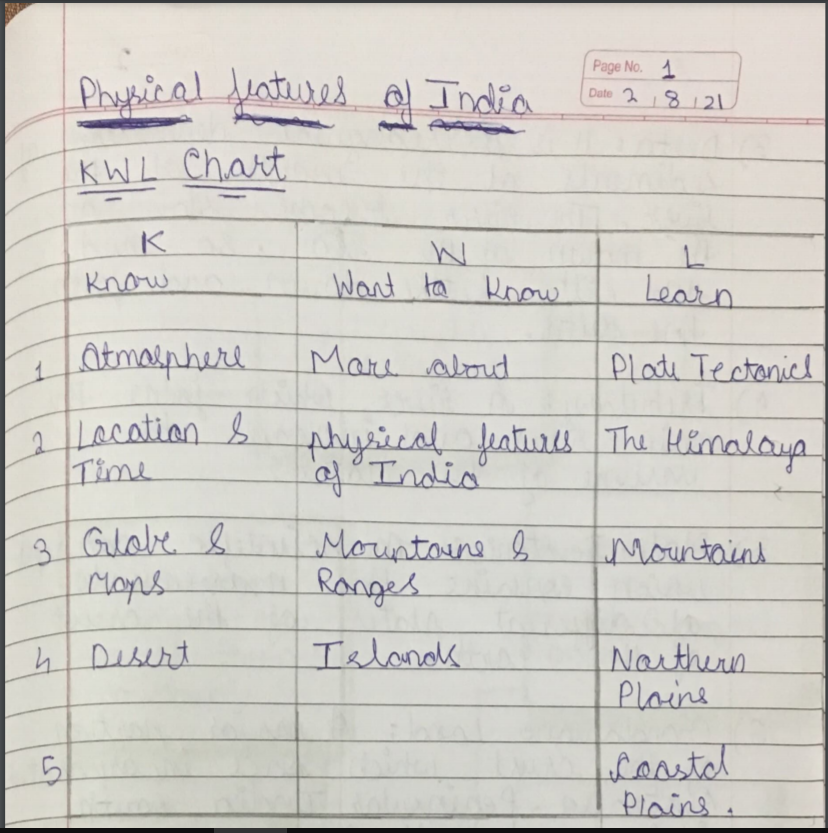 Page No. 1
Date 2 / 8 / 21
Physical features of India
KWL Chart
K W L
Know Want to Know Learn
1 Atmosphere More about Plate Tectonics
2 Location & physical features The Himalaya
Time of India
3 Globe & Mountains & Mountains
Maps Ranges
4 Desert Islands Northern
Plains
5 Coastal
Plains.